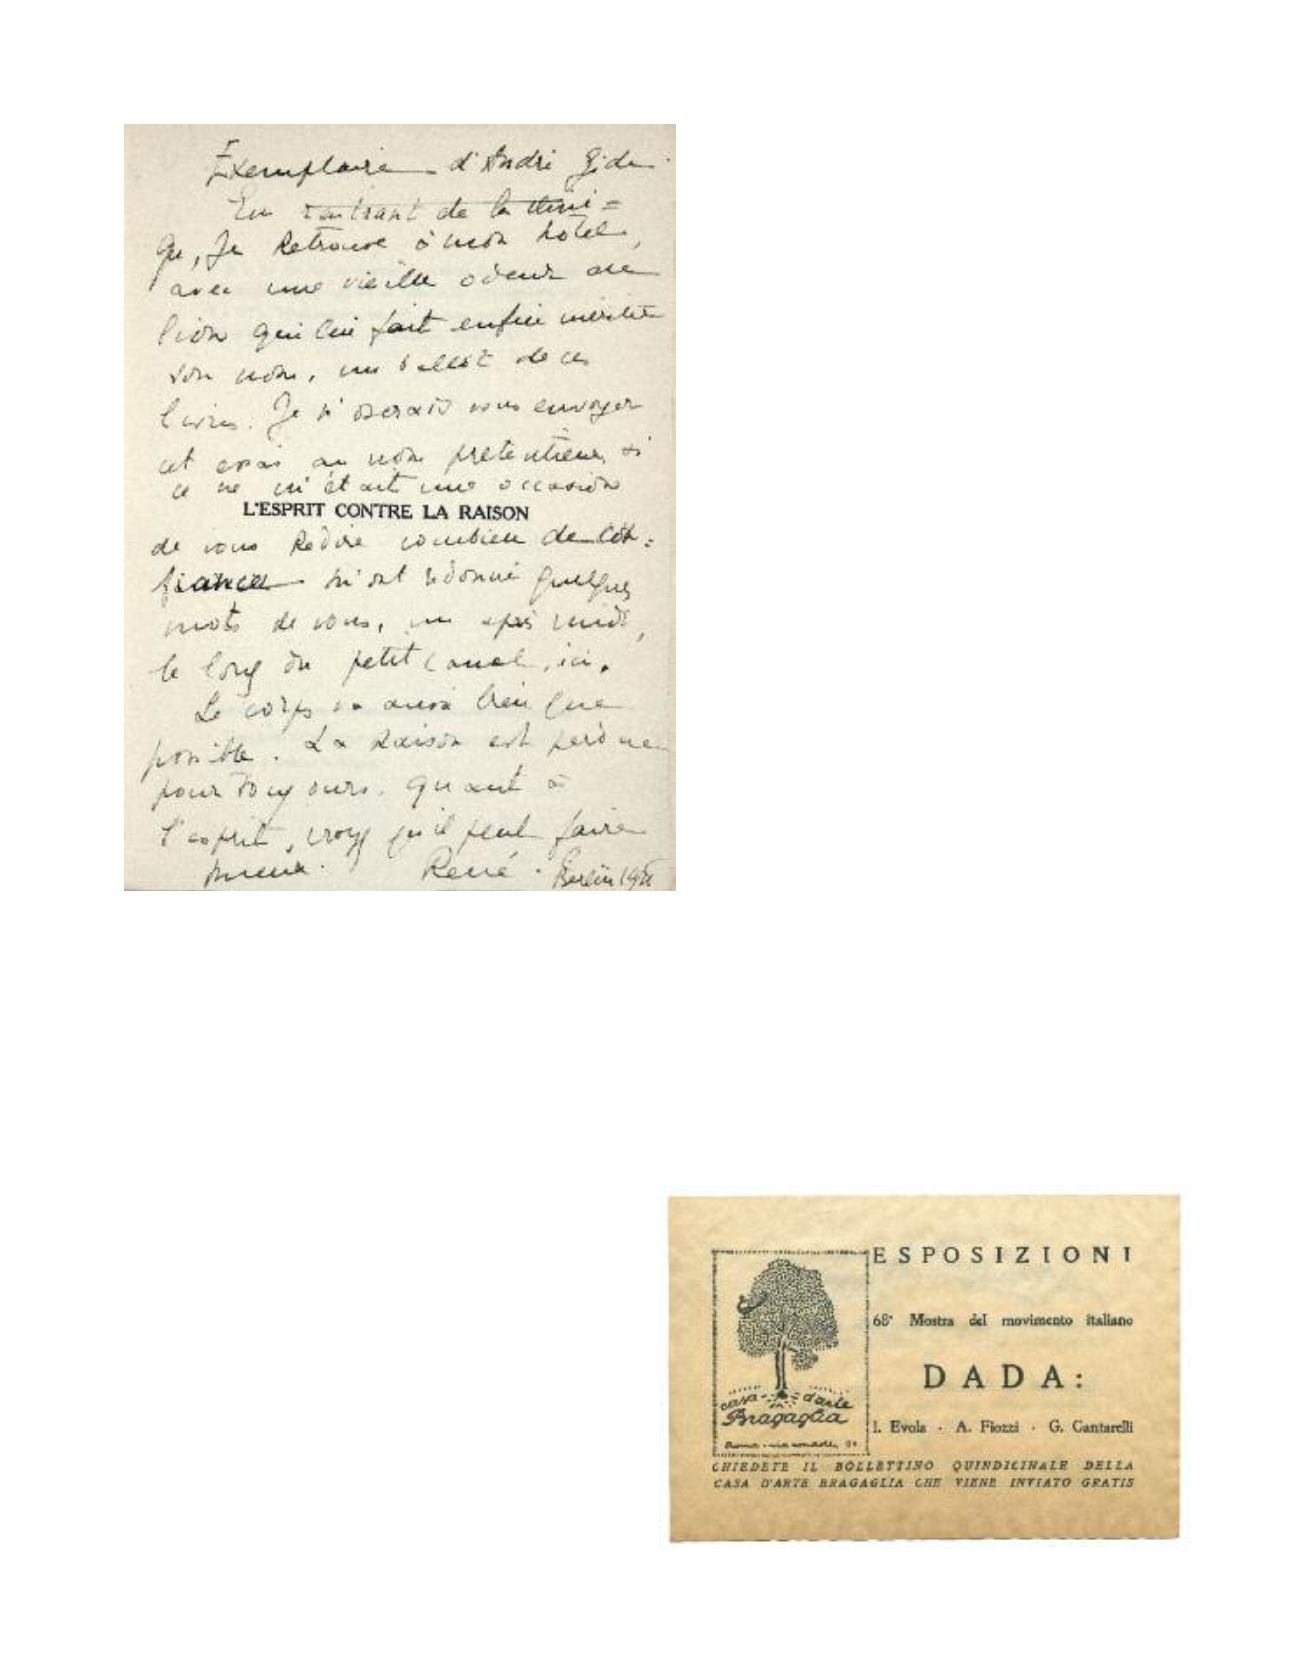 Exemplaire d'André Gide.
En rentrant de la clini=
que, Je Retrouve à mon hôtel,
avec une vieille odeur de
lion qui lui fait enfin mériter
son nom, un ballot de ces
livres. Je n'oserais vous envoyer
cet essai au nom prétentieux si
ce ne m'était une occasion
L'ESPRIT CONTRE LA RAISON
de vous Redire combien de con=
fiance m'ont redonné quelques
mots de vous, un après midi,
le long du petit canal, ici.
Le corps va aussi bien que
possible. La Raison est perdue
pour toujours. quant à
l'esprit, croyez qu'il peut faire
mieux. René. Berlin
ESPOSIZIONI
68ª Mostra del movimento italiano
DADA:
casa d'arte
Bragaglia
Roma - via
I. Evola - A. Fiozzi - G. Cantarelli
CHIEDETE IL BOLLETTINO QUINDICINALE DELLA
CASA D'ARTE BRAGAGLIA CHE VIENE INVIATO GRATIS